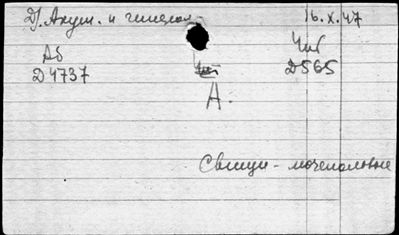 Д. Акуш. и гинекол. 16.X.47
Аб Чит
Д4737 Д565
А.
Свищи - мочеполовые